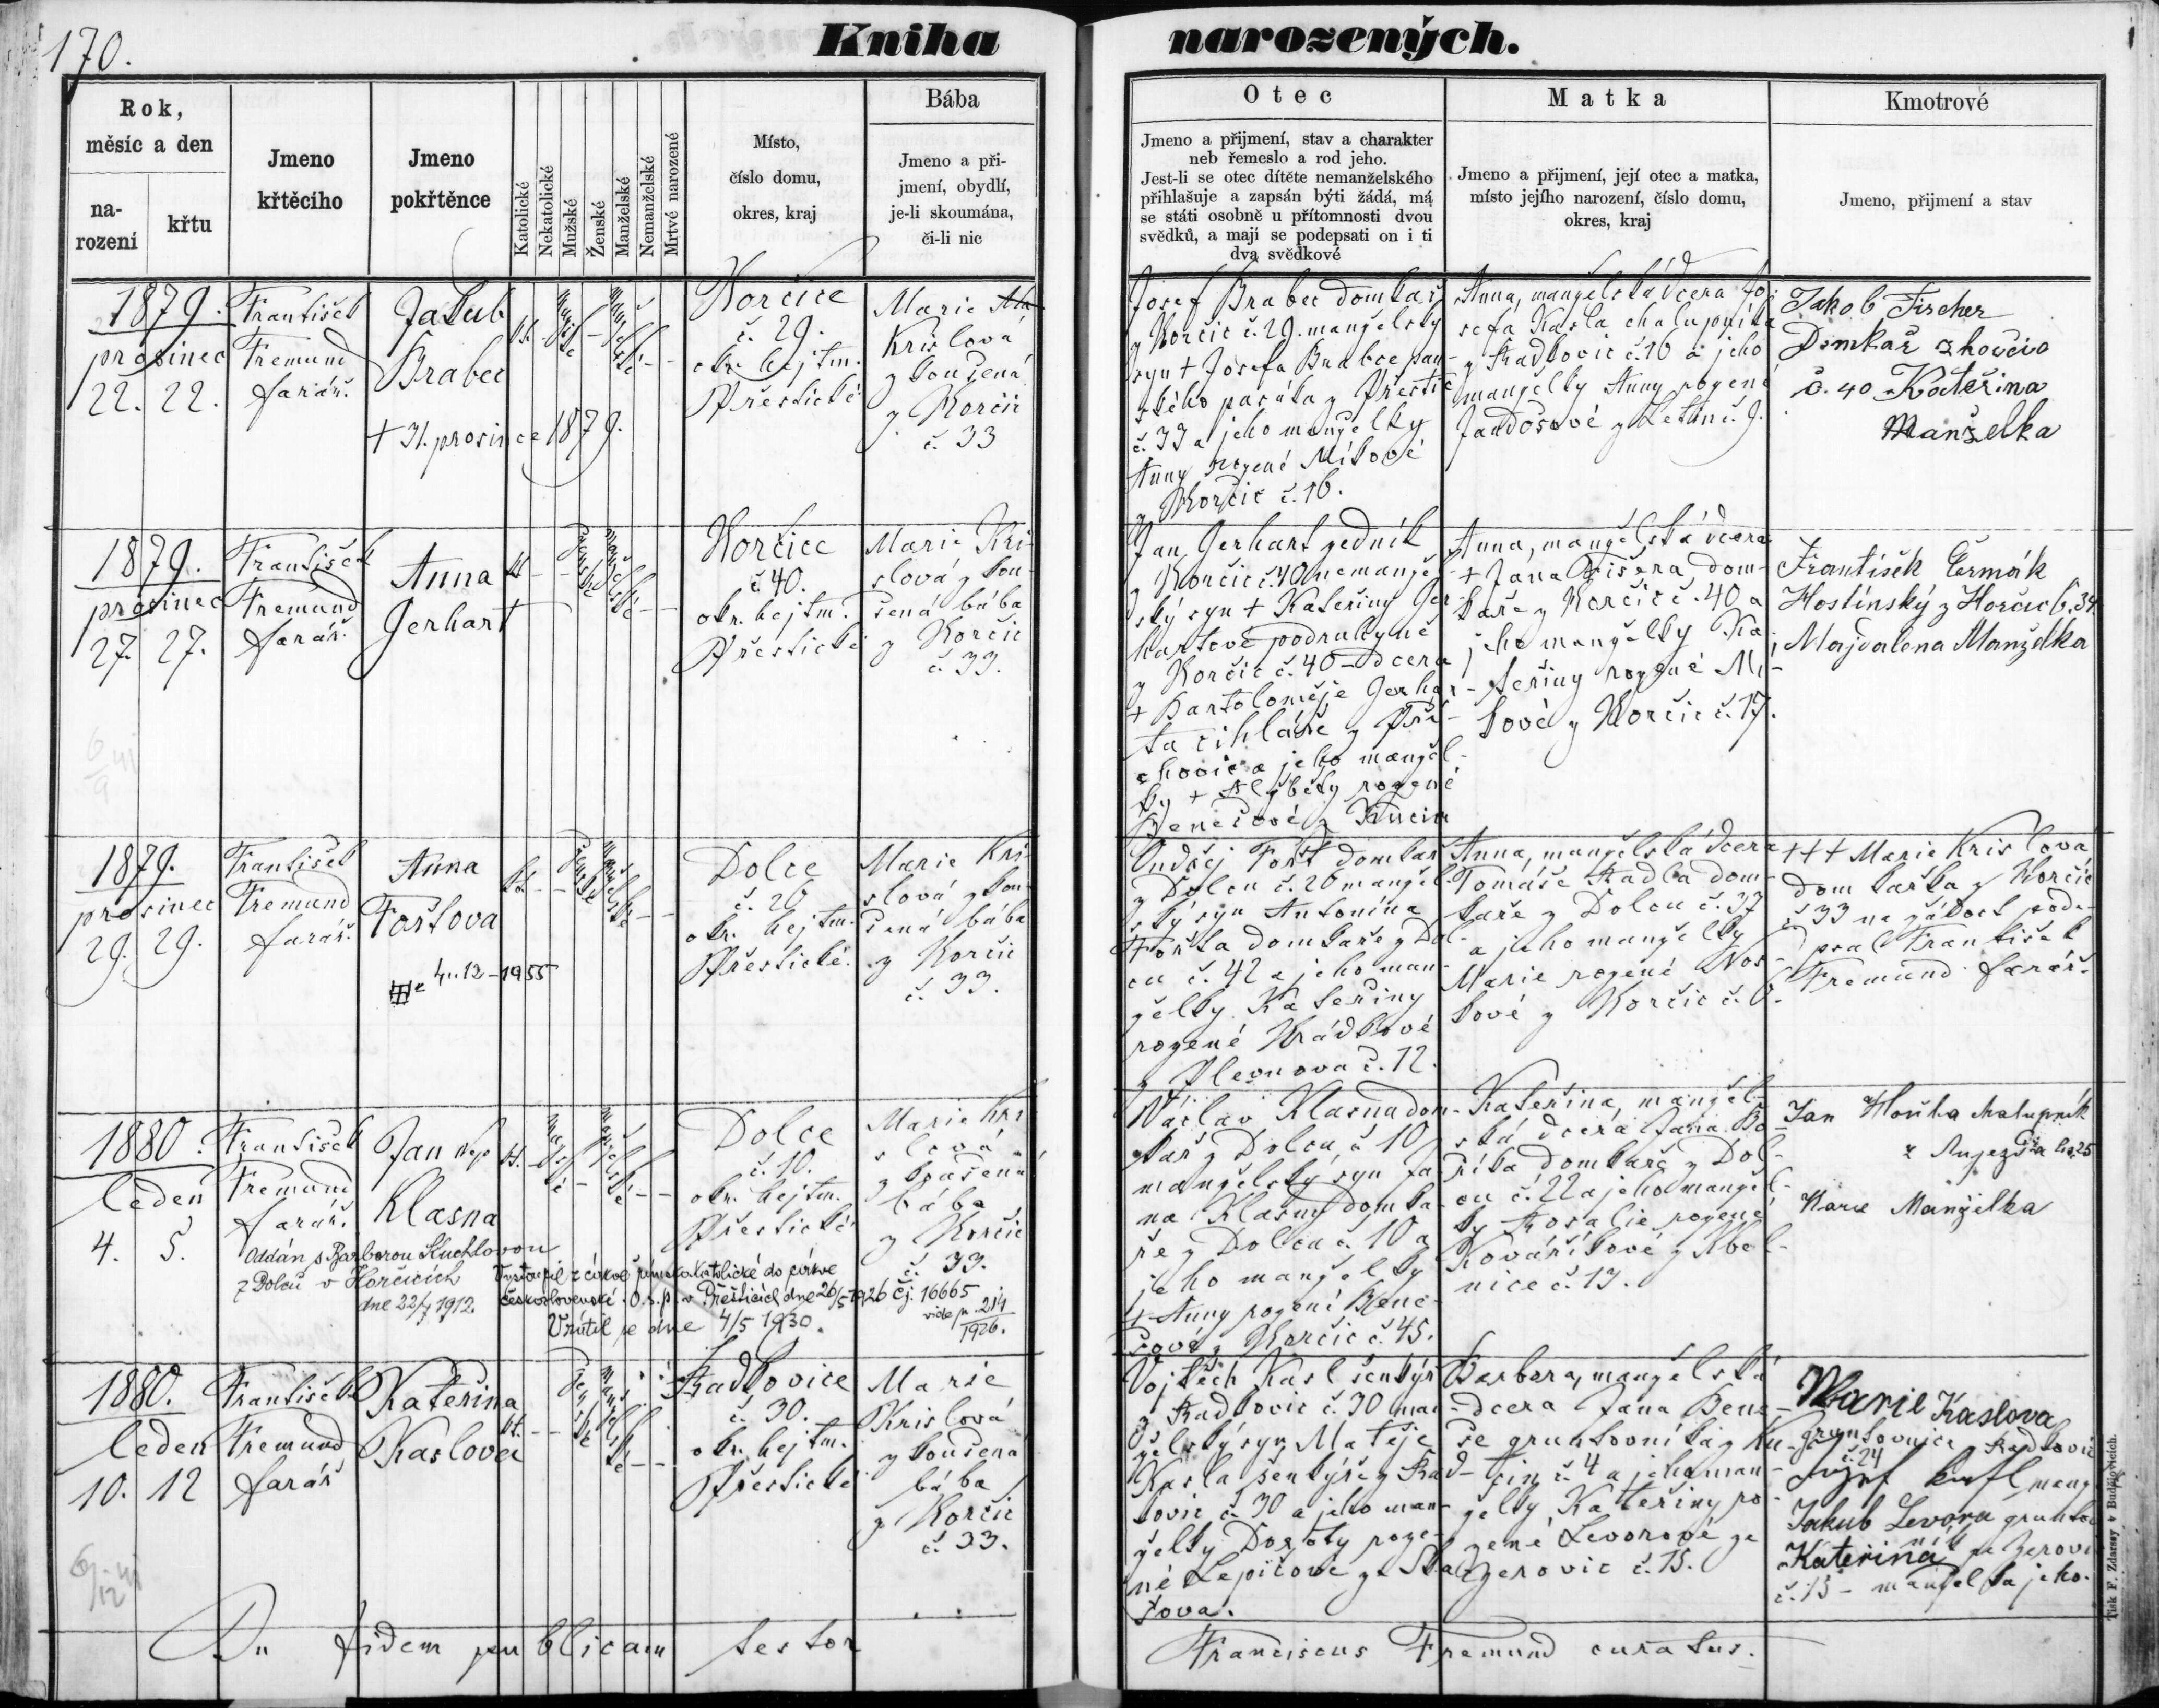 170.
Kniha narozených.
Rok,
měsíc a den
na-
rození
křtu
Jmeno
křtěcího
Jmeno
pokřtěnce
Katolické
Nekatolické
Mužské
Ženské
Manželské
Nemanželské
Mrtvé narozené
Místo,
číslo domu,
okres, kraj
Bába
Jmeno a při-
jmení, obydlí,
je-li skoumána,
či-li nic
Otec
Jmeno a přijmení, stav a charakter
neb řemeslo a rod jeho.
Jest-li se otec dítěte nemanželského
přihlašuje a zapsán býti žádá, má
se státi osobně u přítomnosti dvou
svědků, a mají se podepsati on i ti
dva svědkové
Matka
Jmeno a přijmení, její otec a matka,
místo jejího narození, číslo domu,
okres, kraj
Kmotrové
Jmeno, přijmení a stav
1879.
prosinec
22. 22.
František
Fremund
farář.
Jakub
Brabec
+ 31. prosince 1879.
Horčice
č. 29.
okr. hejtm.
Přestické
Marie
Krislová
zkoušená
z Horčic
č. 33
Josef Brabec domkař
z Horčic č. 29. manželský
syn + Josefa Brabce pan-
ského pasáka z Přestic
č. 33 a jeho manželky
Anny rozené Míkové
z Horčic č. 16.
Anna, manželská dcera Jo-
sefa Kasla chalupníka
z Radkovic č. 10 a jeho
manželky Anny rozené
Jandošové z Letin č. 9.
Jakob Fischer
Domkař z hočic
č. 40 Kateřina
Manželka
1879.
prosinec
27. 27.
František
Fremund
farář.
Anna
Gerhart
Horčice
č. 40.
okr. hejtm.
Přestické
Marie Kri-
slová zkou-
šená bába
z Horčic
č. 33.
Jan Gerhart zedník
z Horčic č. 40 nemanžel-
ský syn + Kateřiny Ger-
hartové podruhyně
z Horčic č. 40 - dcera
+ Bartoloměje Gerhar-
ta cihláře z Pří-
chovic a jeho manžel-
ky + Alžběty rozené
Benešové z Kucin
Anna, manželská dcera
+ Jana Fišera dom-
kaře z Horčic č. 40 a
jeho manželky Ka-
teřiny rozené Mí-
kové z Horčic č. 17.
František Čermák
Hostinský z Horčic č. 34
Majdalena Manželka
1879.
prosinec
29. 29.
František
Fremund
farář.
Anna
Foštova
4. 12 - 1955
Dolce
č. 20
okr. hejtm.
Přestické.
Marie Kri-
slová zkou-
šená bába
z Horčic
č. 33.
Ondřej Fošt domkář
z Dolcu č. 20 manžel-
ský syn Antonína
Fošta domkaře z Dol-
cu č. 42 a jeho man-
želky Kateřiny
rozené Hrádkové
z Plevnova č. 12.
Anna, manželská dcera
Tomáše Kadla dom-
kaře z Dolcu č. 37
a jeho manželky
Marie rozené Nos-
kové z Horčic č. 6.
+++ Marie Krislova
domkařka z Horčic
č 33 na žádost pode-
psal František
Fremund farář.
1880.
leden
4. 5.
František
Fremund
farář.
Jan Nep
Klasna
Oddán s Barborou Kuchlovou
z Dolců v Horčicích
dne 22/7 1912.
Vystoupil z církve římskokatolické do církve
československé. O.s.p. v Přešticích dne 26/5 1926 čj. 16665
vide p. 214
1926.
Vrátil se dne 4/5 1930.
Dolce
č. 10.
okr. hejtm.
Přestické
Marie Kri
slová
zkoušená
bába
z Horčic
č. 33.
Václav Klasna dom-
kář z Dolcu č. 10
manželský syn Ja-
na Klasny domka-
ře z Dolcu č. 10 a
jeho manželky
+ Anny rozené Bene-
šové z Horčic č. 45.
Kateřina, manžel-
ská dcera Jana
domkaře z Dol-
cu č. 22 a jeho manžel-
ky Rosalie rozené
Kovaříkové z Kbel-
nice č. 13.
Jan Houška chalupník
z Aujezda čis. 25
Marie Manželka
1880.
leden
10. 12
František
Fremund
farář
Kateřina
Kaslova
Radkovice
č. 30.
okr. hejtm.
Přestické
Marie
Krislová
zkoušená
bába
z Horčic
č. 33.
Vojtěch Kasl šenkýř
z Radkovic č. 30 man-
želský syn Matěje
Kasla šenkýře z Rad-
kovic č. 30 a jeho man-
želky Doroty roze-
né Lepičové ze Ska-
šova.
Barbora, manželská
dcera Jana Bene-
še gruntovníka z Ku-
cin č. 4 a jeho man-
želky Kateřiny ro-
zené Levorové ze
Zerovic č. 15.
Marie Kaslova
gruntovnice z Radkovic
č. 24
Jozef Kasl manž
Jakub Levora grunto
Kateřina ze Zerovic
č. 15 - manželka jeho.
In fidem publicam testor
Franciscus Fremund curatus.
Tisk F. Zdarssy v Budějovicích.